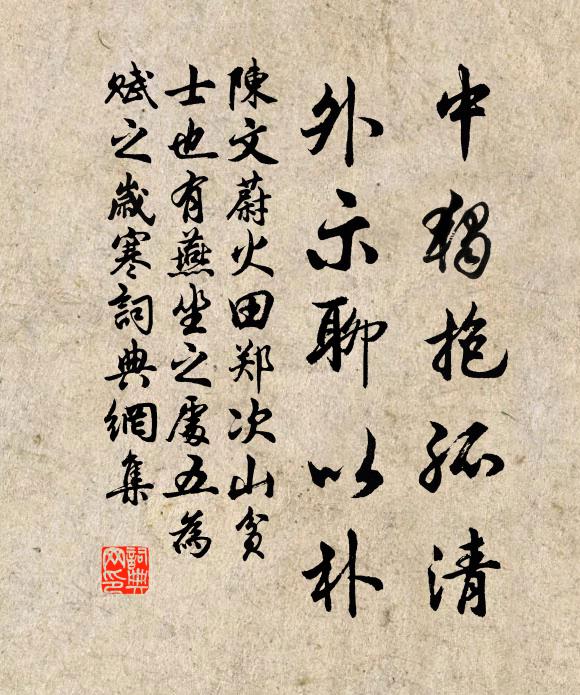 中獨抱孤清
外示聊以朴
陳文蔚火田郑次山貧
士也有燕坐之處五為
賦之歲寒詞典網集
詞典网印